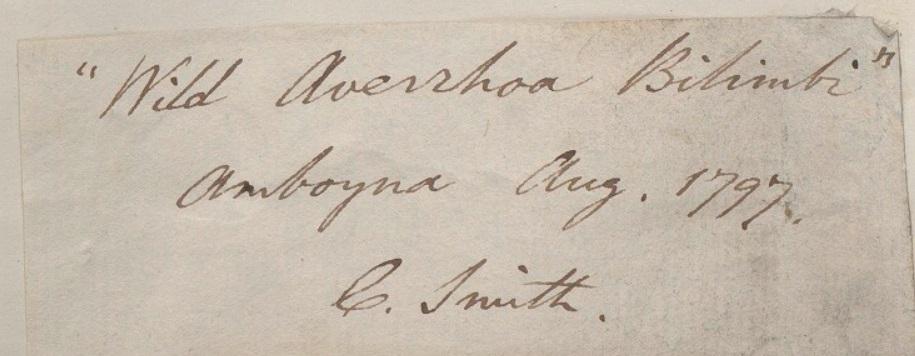 "Wild Averrhoa Bilimbi"
Amboyna Aug. 1797.
C. Smith.